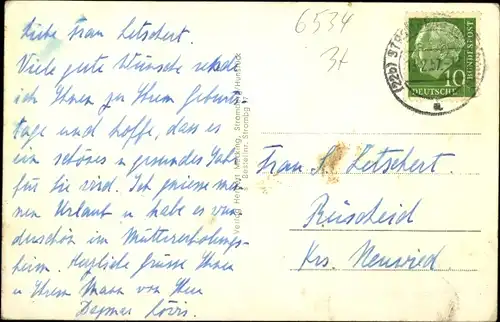 Liebe Frau Letschert.
Viele gute Wünsche sende
ich Ihnen zu Ihrem Geburts
tage und hoffe, dass es
ein schönes u gesundes Jahr
für Sie wird. Ich geniesse mei
nen Urlaub u habe es wun
derschön im Müttererholungs-
heim. Herzliche Grüsse Ihnen
u Ihrem Mann von Ihrer
Dagmar
6534
(22b)
57
10
DEUTSCHE
BUNDESPOST
a
Verlag
Bestellnr. Strombg. 17
Frau A. Letschert.
Rüscheid
Krs. Neuwied